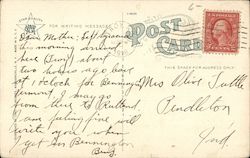 FOR WRITING MESSAGES
POST
CARD
THIS SPACE FOR ADDRESS ONLY
Dear Mother: Left Syracuse
this morning arrived
here (Troy) about
two hours ago leave
at 1 o'clock for Benning-
I may go
from there to Rutland
I am feeling fine will
write you when
I get to Bennington
Mrs Olive Tuttle
Pendleton
Ind.